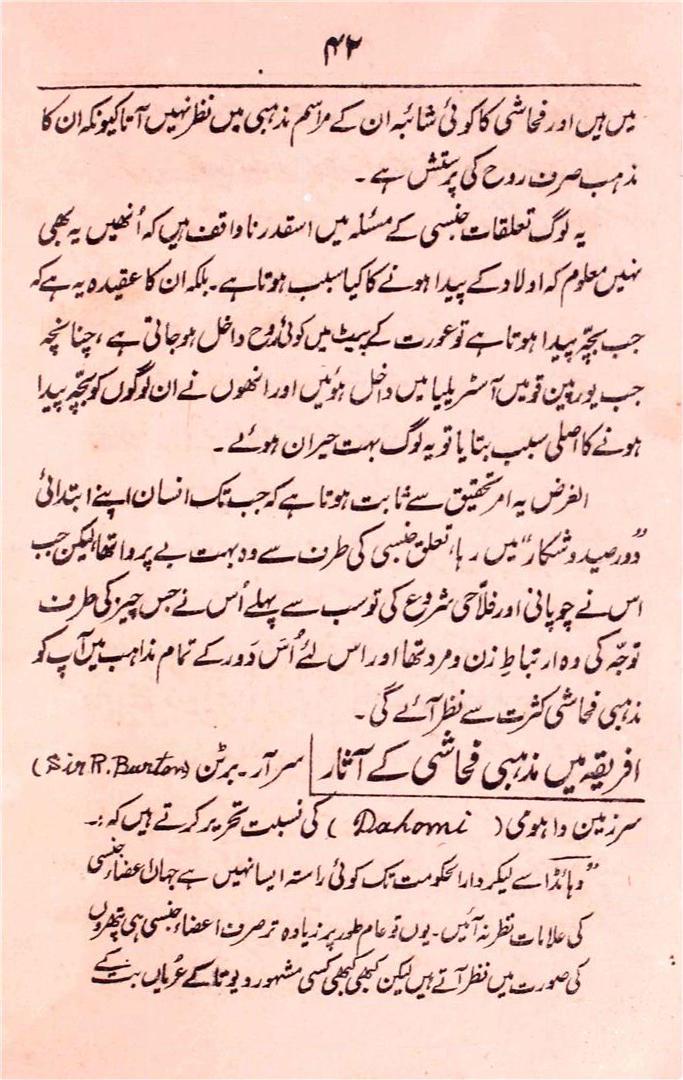 ۴۲
میں ہیں اور فحاشی کا کوئی شائبہ ان کے مراسم مذہبی میں نظر نہیں آتا کیونکہ ان کا
مذہب صرف روح کی پرستش ہے۔
یہ لوگ تعلقات جنسی کے مسئلہ میں اسقدر ناواقف ہیں کہ اُنھیں یہ بھی
نہیں معلوم کہ اولاد کے پیدا ہونے کا کیا سبب ہوتا ہے۔ بلکہ ان کا عقیدہ یہ ہے کہ
جب بچّہ پیدا ہوتا ہے تو عورت کے پیٹ میں کوئی روح داخل ہو جاتی ہے، چنانچہ
جب یورپین قومیں آسٹریلیا میں داخل ہوئیں اور انھوں نے ان لوگوں کو بچّہ پیدا
ہونے کا اصلی سبب بتایا تو یہ لوگ بہت حیران ہوئے۔
الغرض یہ امر تحقیق سے ثابت ہوتا ہے کہ جب تک انسان اپنے ابتدائی
”دور صید و شکار“ میں رہا، تعلق جنسی کی طرف سے وہ بہت بے پروا تھا، لیکن جب
اس نے چوپانی اور فلاّحی شروع کی تو سب سے پہلے اُس نے جس چیز کی طرف
توجّہ کی وہ ارتباطِ زن و مرد تھا اور اس لئے اُس دَور کے تمام مذاہب میں آپ کو
مذہبی فحاشی کثرت سے نظر آئے گی۔
افریقہ میں مذہبی فحاشی کے آثار سر آر۔ برٹن (Sir R. Burton)
سرزمین داہومی (Dahomi) کی نسبت تحریر کرتے ہیں کہ:۔
”وہائڈا سے لیکر دارالحکومت تک کوئی راستہ ایسا نہیں ہے جہاں اعضاء جنسی
کی علامات نظر نہ آئیں۔ یوں تو عام طور پر زیادہ تر صرف اعضاء جنسی ہی پتھروں
کی صورت میں نظر آتے ہیں لیکن کبھی کبھی کسی مشہور دیوتا کے عُریاں بت کے